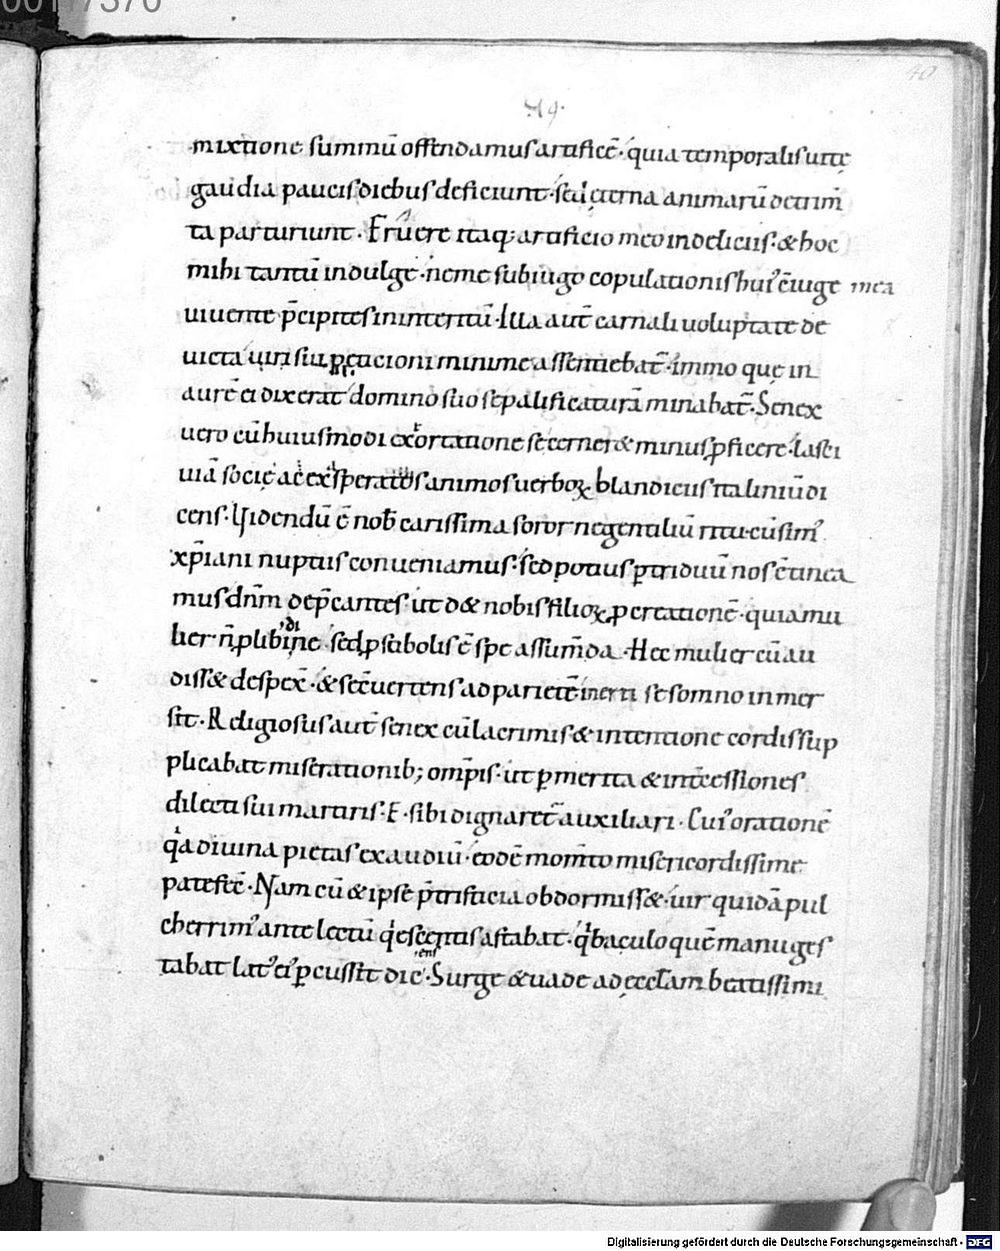 40
mixtione summū offendamus artificē· quia temporalis uitę
gaudia paucis diebus deficiunt· sed ęterna animarū detrim̄
ta parturiunt· Fruere itaq; artificio meo in deliciis· & hoc
mihi tantū indulge· ne me sub iugo copulationis huiꝰ ēiuge mea
uiuente p̄cipites in interitū· Illa aut̄ carnali uoluptate de
uicta uiri sui peticioni minime assentiebat̄· immo que in
aurē ei dixerat domino suo sepalificaturā minabat̄· Senex
uero cū huiusmodi exortatione se cerner& minus ꝓficere· lasci
uiā socię ac exsperatis animos uerboꝝ blandiciis ita liniū di
cens· Uidendū ē nob̄ carissima soror ne gentiliū ritu cū simꝰ
xp̄iani nuptiis conueniamus· sed potius ꝑ triduū nos ētinea
mus dn̄m dep̄cantes· ut d& nobis filioꝝ ꝓcreationē· quia mu
lier n̄ ꝓ libidine· sed ꝓ sobolis ē spe assum̄da· Hec mulier cū au
diss& despex̄· & se ēuertens ad parietē inerti se somno inmer
sit· Religiosus aut̄ senex cū lacrimis & intentione cordis sup
plicabat miserationib; omp̄is· ut ꝑ merita & int̄cessiones
dilecti sui martiris· E· sibi dignaret̄ auxiliari· Cuiꝰ orationē
qa diuina pietas exaudiū· eodē mom̄to misericordissime
patefec̄· Nam cū & ipse p̄ tristicia obdormiss&· uir quidā pul
cherrimꝰ ante lectū qescentis astabat· q baculo quē manu ges
tabat latꝰ eiꝰ ꝑcussit dicens· Surge & uade ad ęccl̄am beatissimi
Digitalisierung gefördert durch die Deutsche Forschungsgemeinschaft - DFG